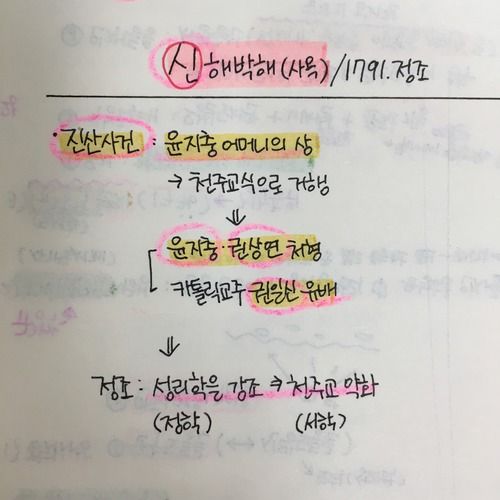 신해박해(사옥)/1791.정조
·진산사건 : 윤지충 어머니의 상
→ 천주교식으로 거행
⇓
윤지충·권상연 처형
카톨릭교주 권일신 유배
⇓
정조 : 성리학을 강조 → 천주교 약화
(정학) (서학)